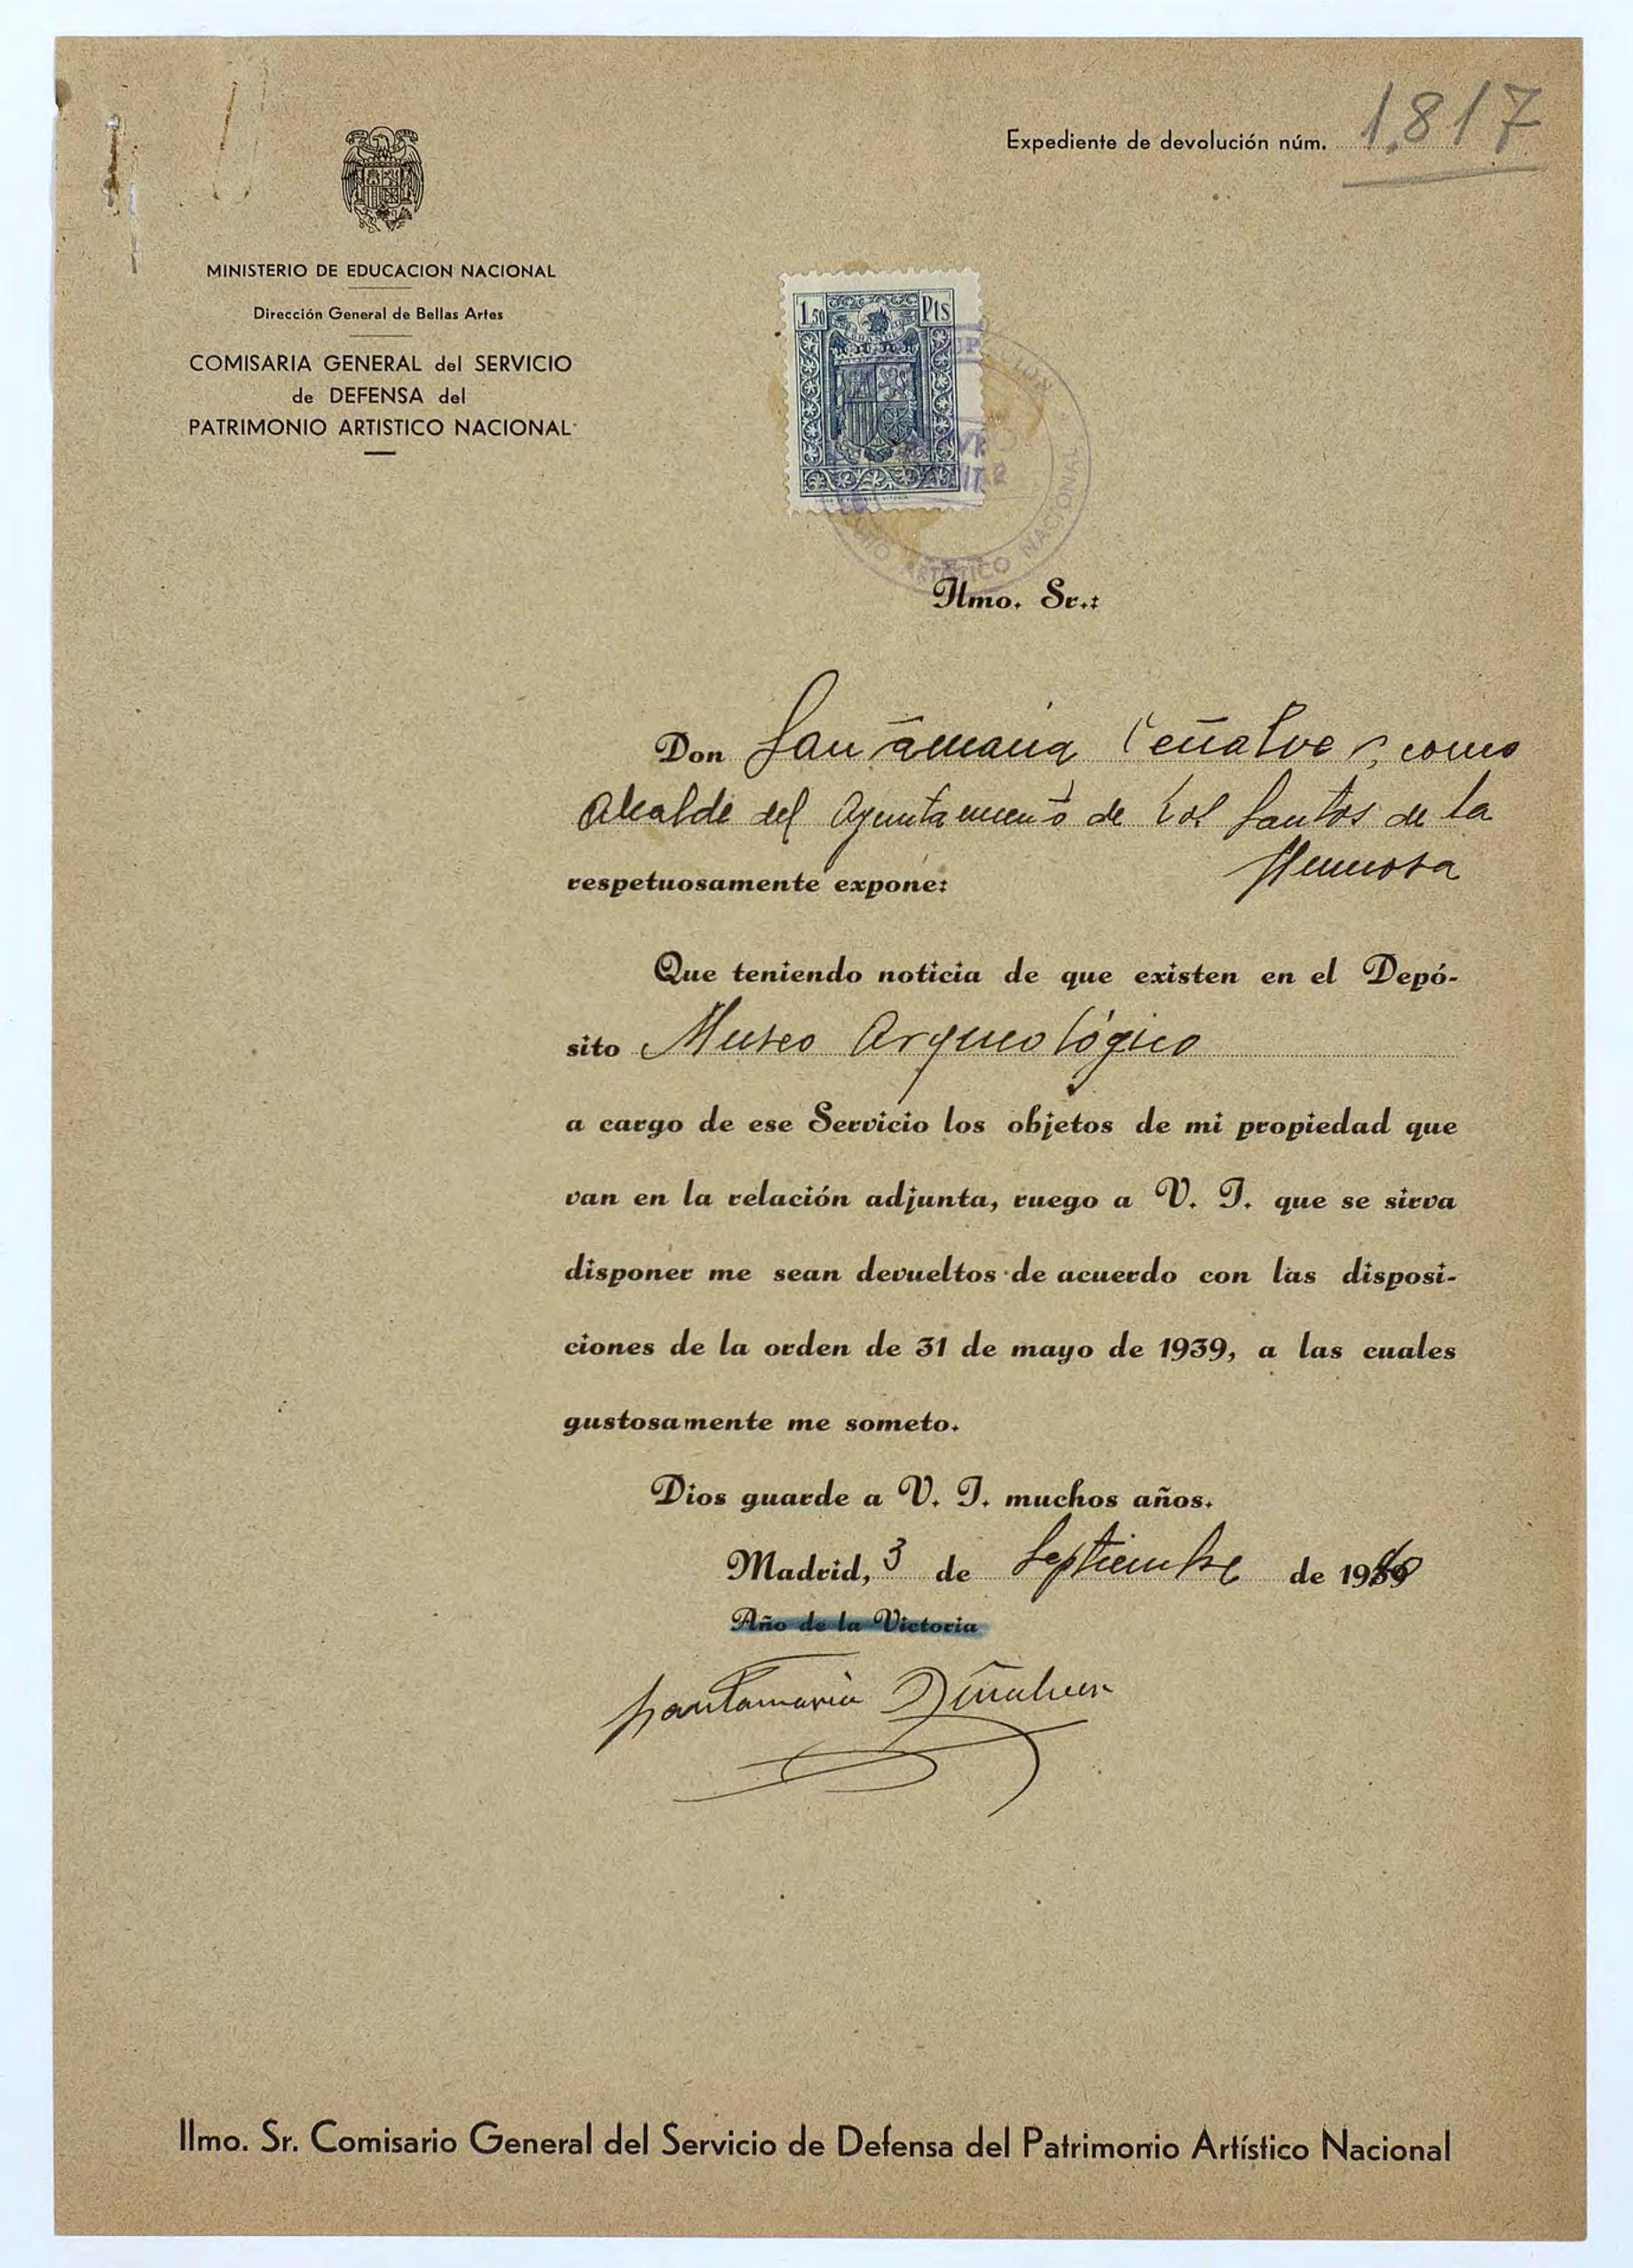 Expediente de devolución núm. 1.817
MINISTERIO DE EDUCACION NACIONAL
Dirección General de Bellas Artes
COMISARIA GENERAL del SERVICIO
de DEFENSA del
PATRIMONIO ARTISTICO NACIONAL
1,50 Pts
ARTISTICO NACIONAL
Ilmo. Sr.:
Don Santamaria Peñalver, como
Alcalde del Ayuntamiento de Los Santos de la
Humosa
respetuosamente expone:
Que teniendo noticia de que existen en el Depó-
sito Museo Arqueológico
a cargo de ese Servicio los objetos de mi propiedad que
van en la relación adjunta, ruego a V. I. que se sirva
disponer me sean devueltos de acuerdo con las disposi-
ciones de la orden de 31 de mayo de 1939, a las cuales
gustosamente me someto.
Dios guarde a V. I. muchos años.
Madrid, 3 de Septiembre de 1940
Año de la Victoria
Santamaria Peñalver
Ilmo. Sr. Comisario General del Servicio de Defensa del Patrimonio Artístico Nacional